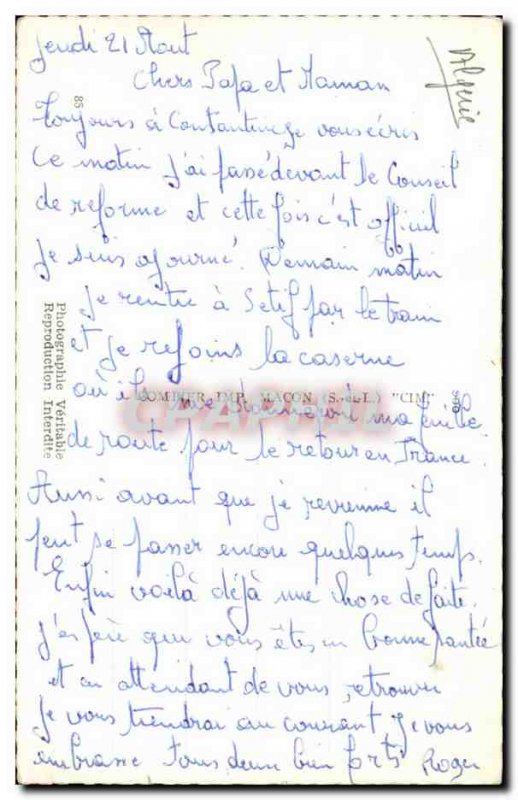 Jeudi 21 Aout
Algérie
Chers Papa et Maman
85
Toujours à Constantine je vous écris
Ce matin j'ai passé devant le Conseil
de reforme et cette fois c'est officiel
je suis ajourné. Demain matin
je rentre à Setif par le train
et je rejoins la caserne
où il me donneront ma feuille
COMBIER IMP. MACON (S.-&-L.) "CIM"
de route pour le retour en France.
Photographie Véritable
Reproduction Interdite
CPAPHIL
Aussi avant que je revienne il
peut se passer encore quelques temps.
Enfin voilà déjà une chose de faite.
J'espère que vous êtes en bonne santée
et en attendant de vous retrouver
je vous tiendrai au courant je vous
embrasse tous deux bien forts Roger